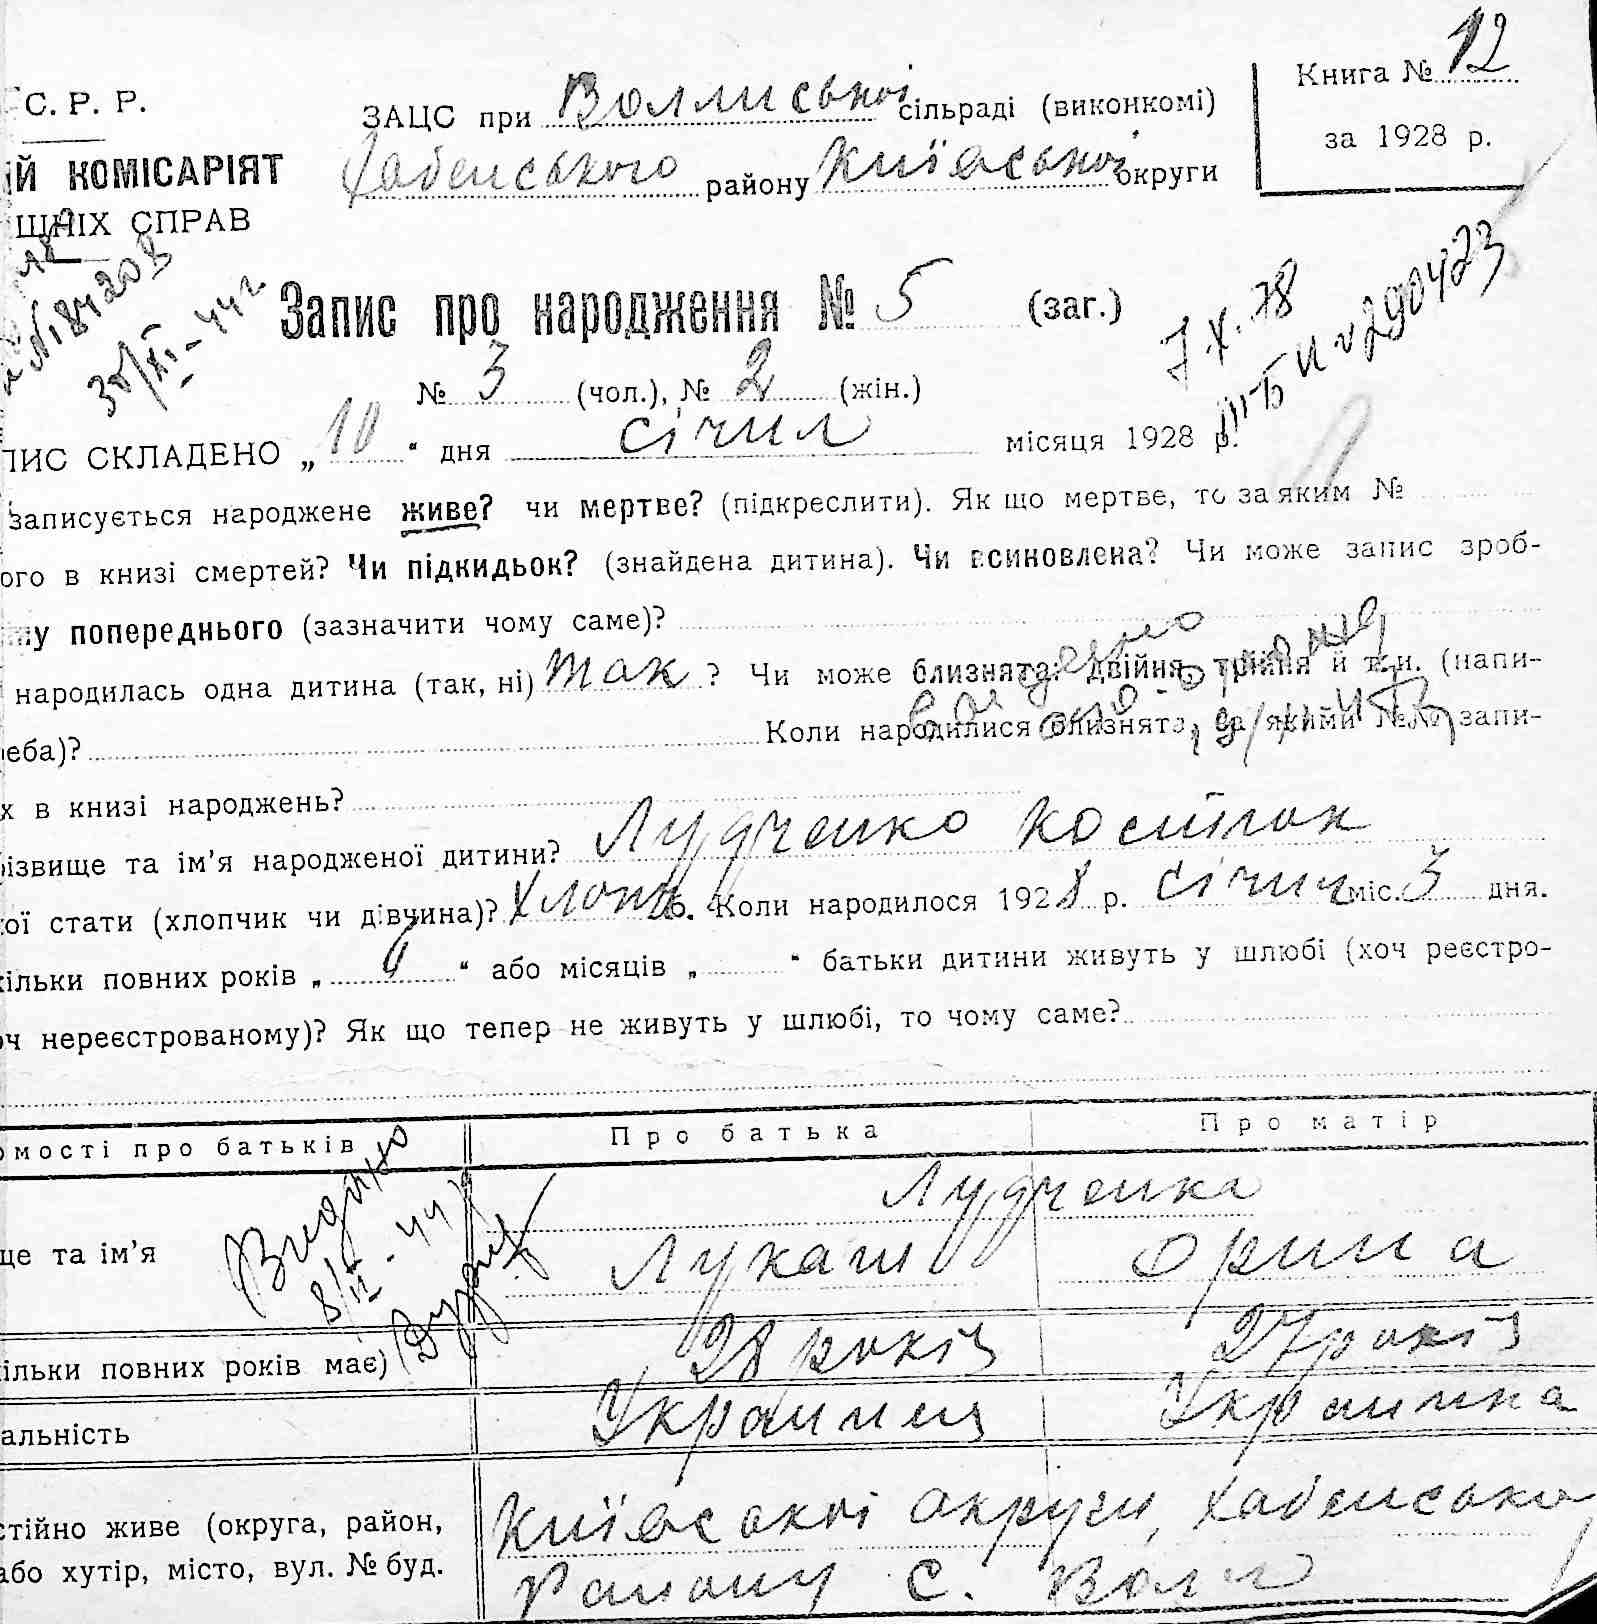 С. Р. Р.
ЗАЦС при Воллиської сільраді (виконкомі)
Книга № 12
за 1928 р.
ІЙ КОМІСАРІЯТ
Хабенського району Київської округи
ШНІХ СПРАВ
№184208
30/XI-44 г
Запис про народження № 5 (заг.)
7 X. 78
ІІІ-БК № 290423
№ 3 (чол.), № 2 (жін.)
ПИС СКЛАДЕНО „10“ дня січня місяця 1928 р.
записується народжене живе? чи мертве? (підкреслити). Як що мертве, то за яким №
ого в книзі смертей? Чи підкидьок? (знайдена дитина). Чи всиновлена? Чи може запис зроб-
му попереднього (зазначити чому саме)?
народилась одна дитина (так, ні) так ? Чи може близнята: двійня, трійня й т. и. (напи-
еба)? Коли народилися близнята, за якими №№ запи-
х в книзі народжень?
різвище та ім’я народженої дитини? Лудченко Костян
кої стати (хлопчик чи дівчина)? Хлопець. Коли народилося 1928 р. січня міс. 3 дня.
кільки повних років „ “ або місяців „ “ батьки дитини живуть у шлюбі (хоч реєстро-
оч нереєстрованому)? Як що тепер не живуть у шлюбі, то чому саме?
омості про батьків Про батька Про матір
Видано
8/II-44
Лудченка
ще та ім’я Лукаш Орина
кільки повних років має) 28 років 27 років
альність Украинец Украинка
стійно живе (округа, район, Київської округи, Хабенсько
або хутір, місто, вул. № буд. Району с. Волл